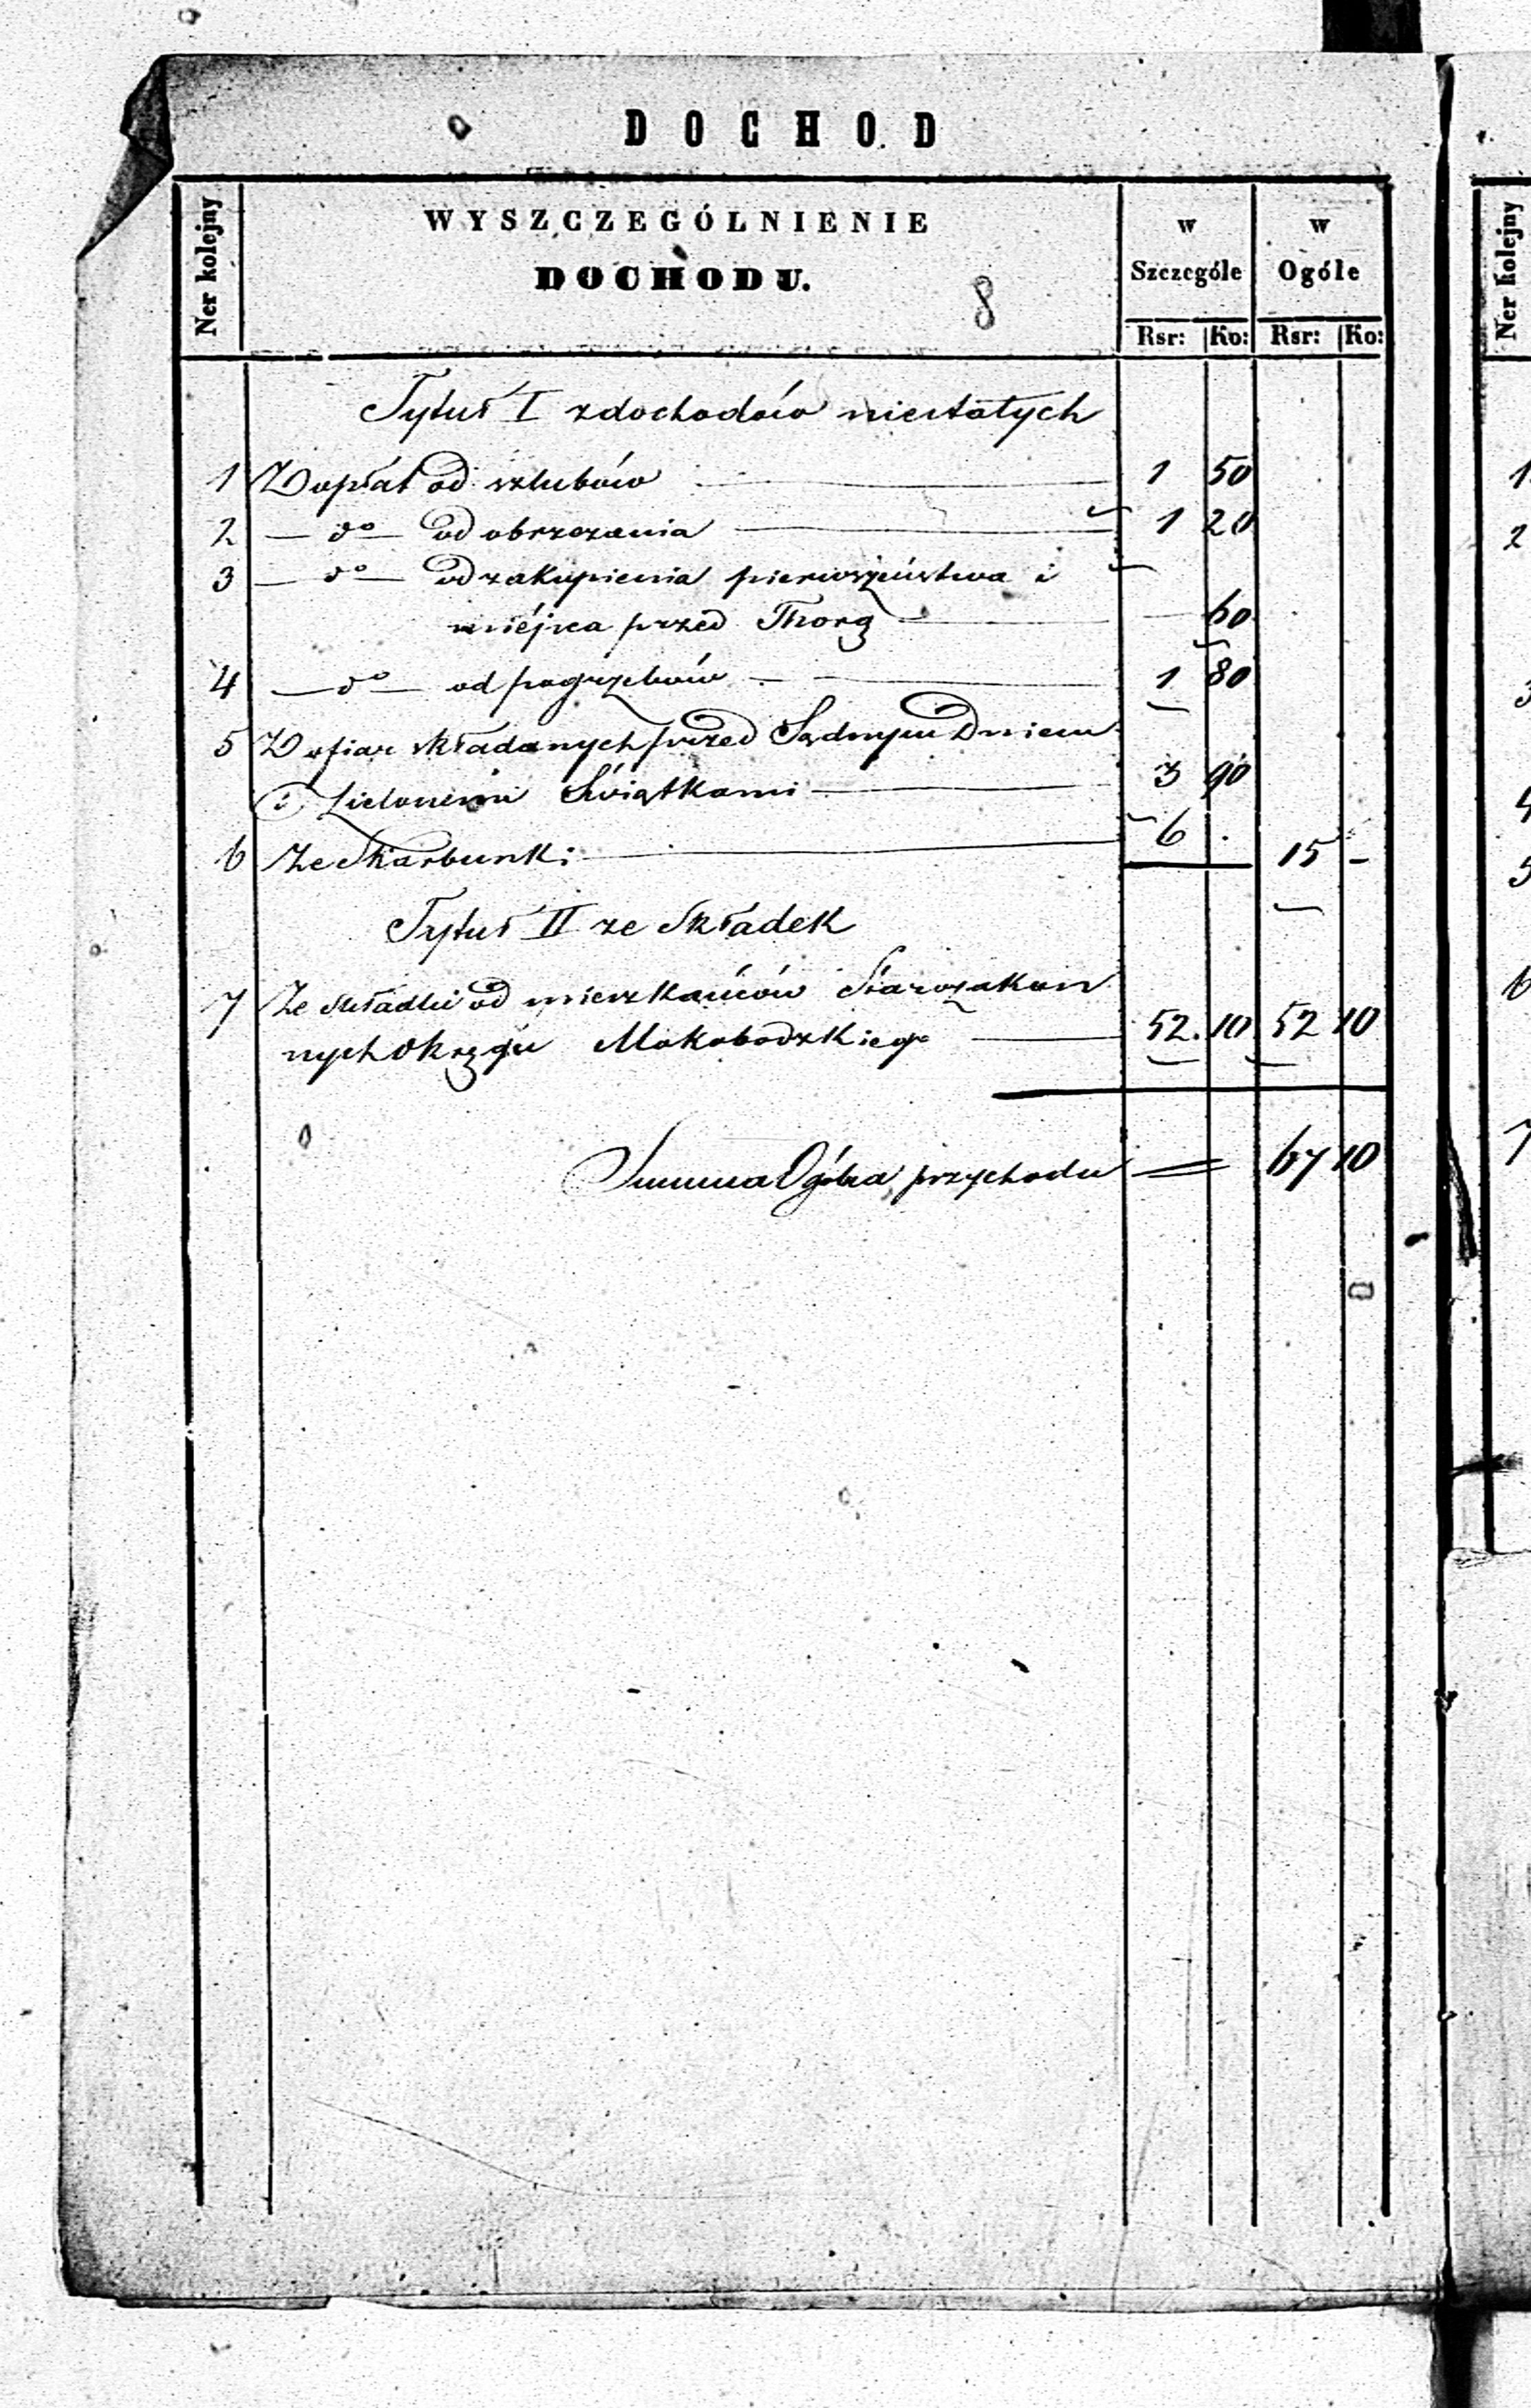 DOCHOD
Ner kolejny
WYSZCZEGÓLNIENIE
DOCHODU.
8
w Szczególe
w Ogóle
Rsr: Ko: Rsr: Ko:
Tytuł I z dochodów niestałych
1 Z opłat od szlubów 1 50
2 — do — od obrzezania 1 20
3 — do — od zakupienia pierwszeństwa i
miéjsca przed Thorą — 60
4 — do — od pogrzebów — 1 80
5 Z ofiar składanych przed Sądnym Dniem
i Zielonemi Świątkami 3 90
6 Ze Skarbunki 6 . 15 -
Tytuł II ze Składek
7 Ze składki od mieszkańców Starozakon
nych Okręgu Mokobodzkiego 52. 10 52 10
Summa Ogólna przychodu = 67 10
Ner kolejny
1
2
3
4
5
6
7